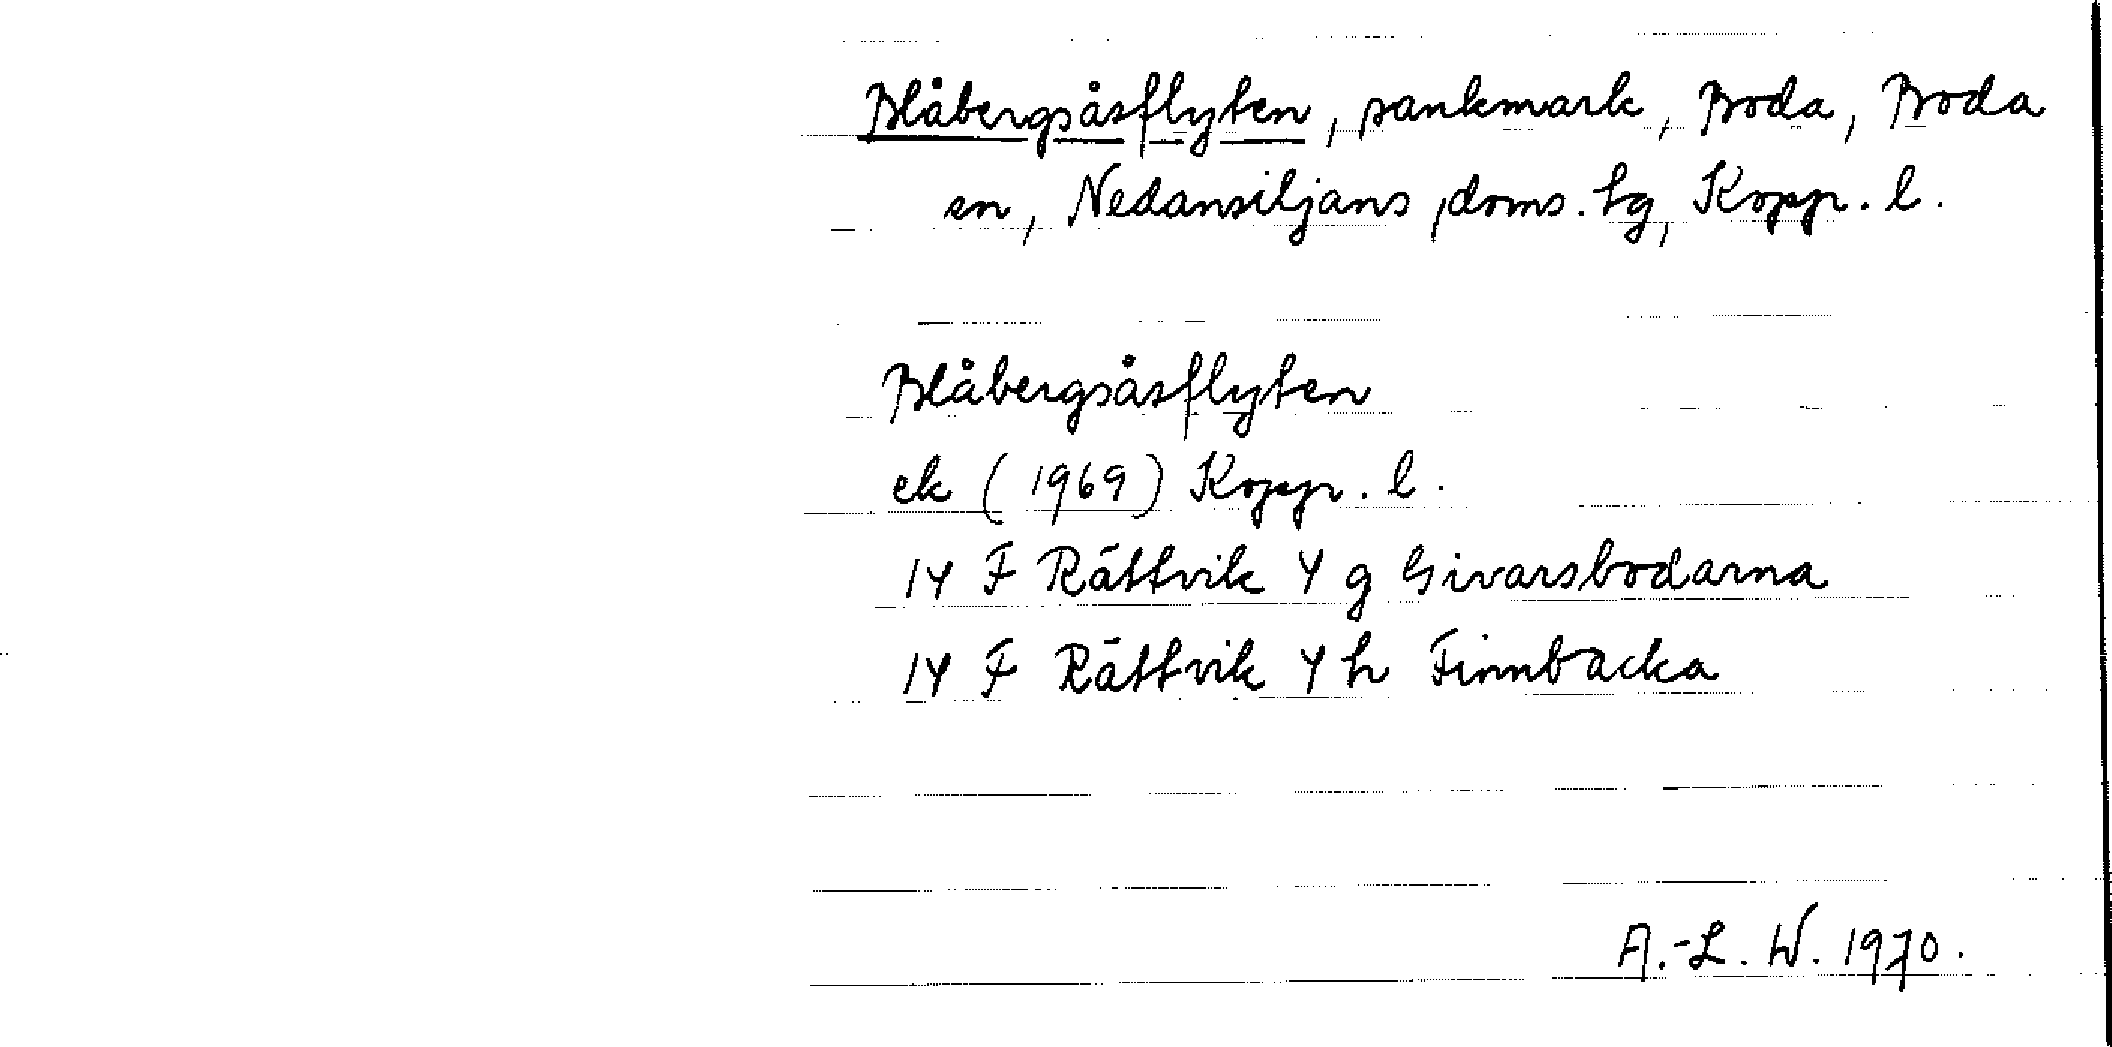 Blåbergsåsflyten, sankmark, Boda, Boda
sn, Nedansiljans doms. hg, Kopp. l.
Blåbergsåsflyten
ek (1969) Kopp. l.
14 F Rättvik 4 g Givarsbodarna
14 F Rättvik 4 h Finnbacka
A.-L. W. 1970.